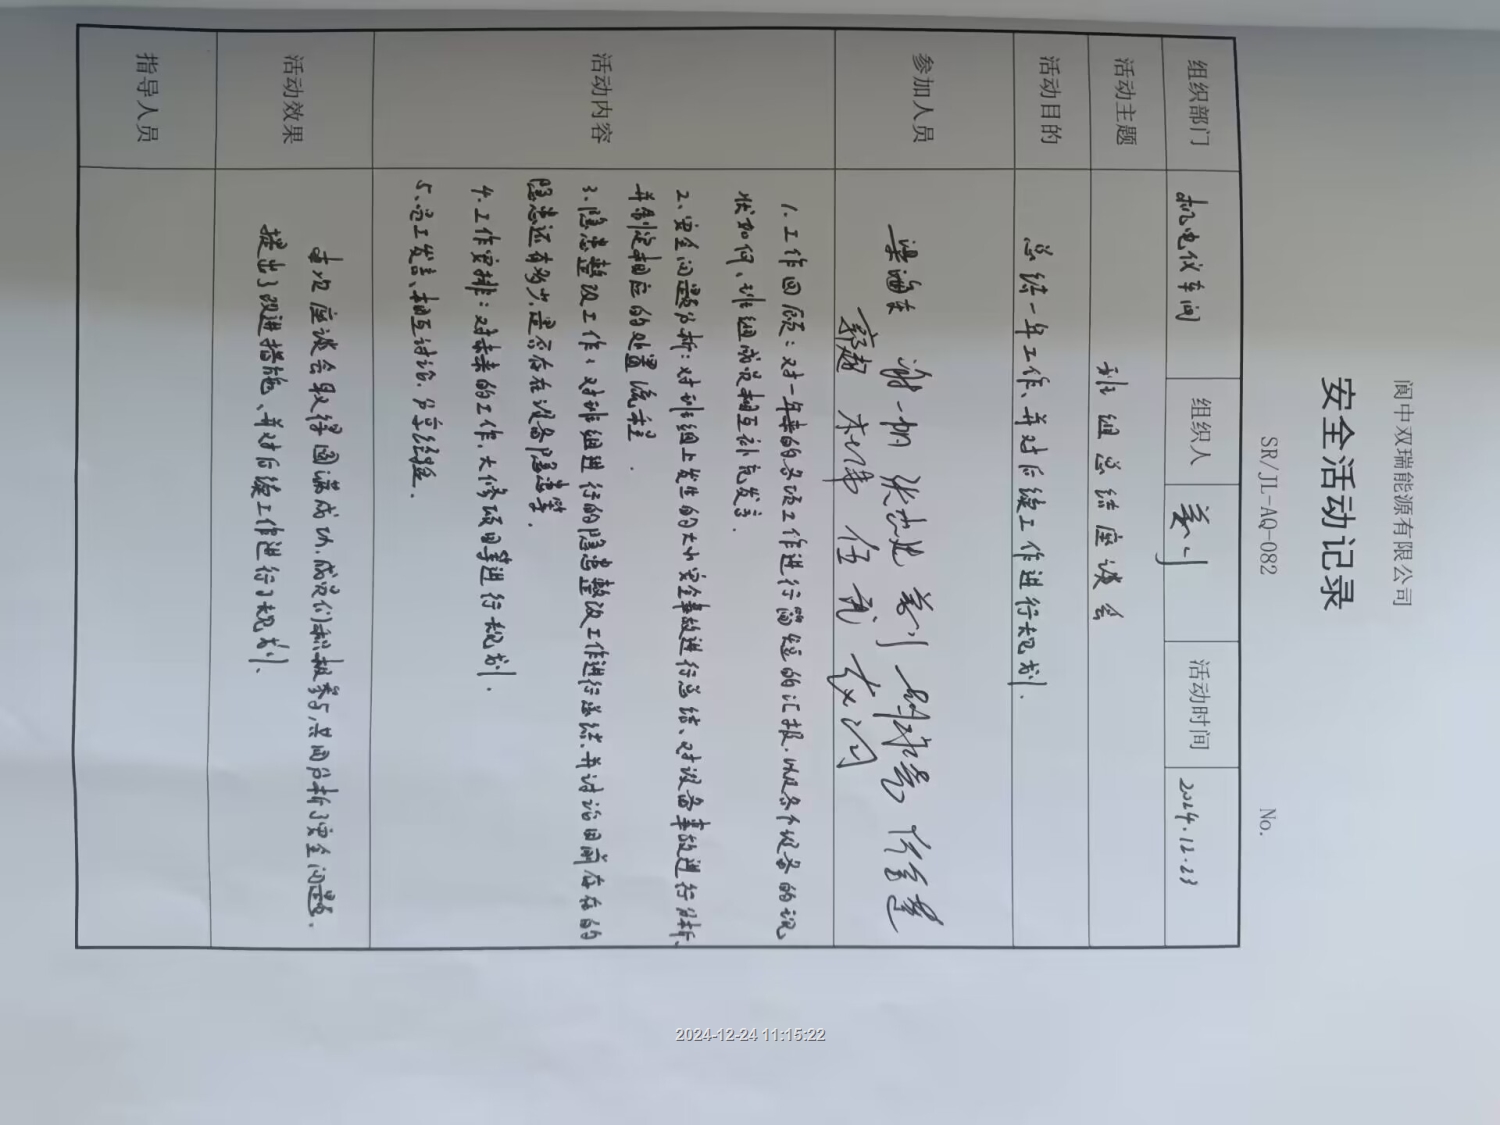 阆中双瑞能源有限公司
安全活动记录
SR/JL-AQ-082 No.
组织部门 机电仪车间 组织人 活动时间 2024.12.23
活动主题 班组总结座谈会
活动目的 总结一年工作、并对后续工作进行规划.
参加人员
活动内容
1.工作回顾:对一年来的各项工作进行简短的汇报.以及各个设备的现
状如何、班组成员相互补充发言.
2、安全问题分析:对班组上发生的大小安全事故进行总结、对设备事故进行分析、
并制定相应的处置流程.
3.隐患整改工作:对班组进行的隐患整改工作进行总结.并讨论目前存在的
隐患还有多少.是否存在设备隐患等.
4.工作安排:对未来的工作.大修项目等进行规划.
5、员工发言、相互讨论.分享经验.
活动效果
本次座谈会取得圆满成功.成员们积极参与.共同分析了安全问题.
提出了改进措施、并对后续工作进行了规划.
指导人员
2024-12-24 11:15:22